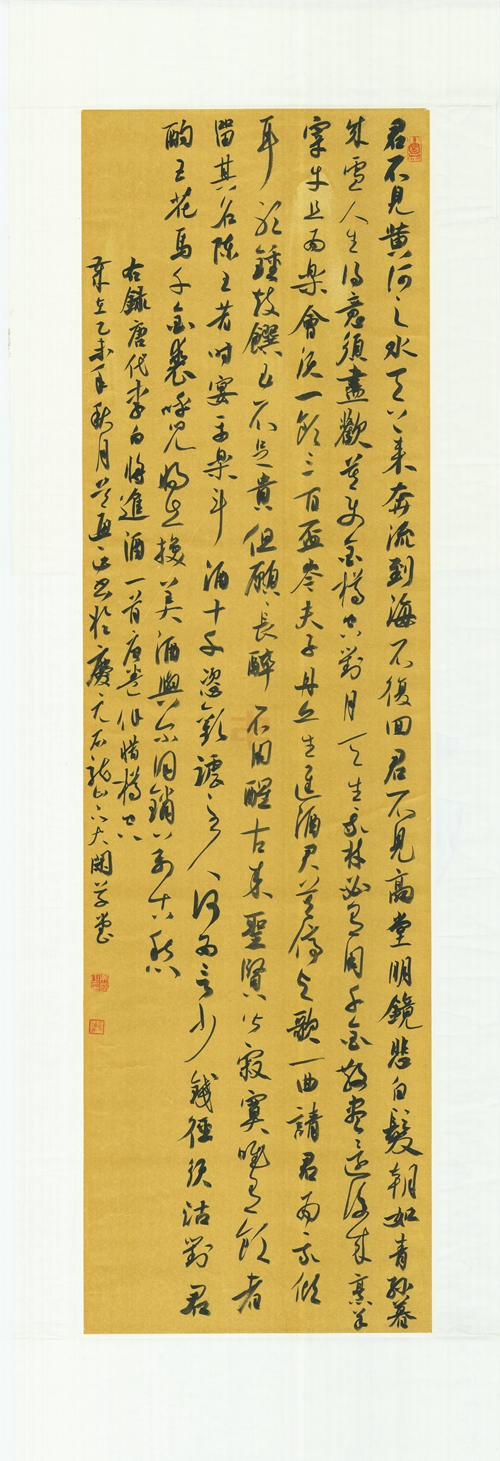 君不見黄河之水天上来奔流到海不復回君不見高堂明鏡悲白髮朝如青絲暮
成雪人生得意須盡歡莫使金樽空對月天生我材必有用千金散盡還復来烹羊
宰牛且為樂會須一飲三百盃岑夫子丹丘生進酒君莫停与歌一曲請君為我傾
耳聽鐘鼓饌玉不足貴但願長醉不用醒古来聖賢皆寂寞唯有飲者
留其名陳王昔時宴平樂斗酒十千恣歡謔主人何為言少錢徑須沽對君
酌五花馬千金裘呼児將出換美酒與尔同銷萬古愁
右録唐代李白將進酒一首惜樽空
歲在乙未年秋月書於慶元石龍山下